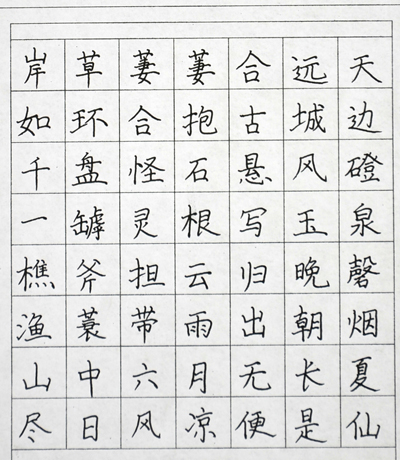 岸草萋萋合远天
如环合抱古城边
千盘怪石悬风磴
一罅灵根写玉泉
樵斧担云归晚磬
渔蓑带雨出朝烟
山中六月无长夏
尽日风凉便是仙